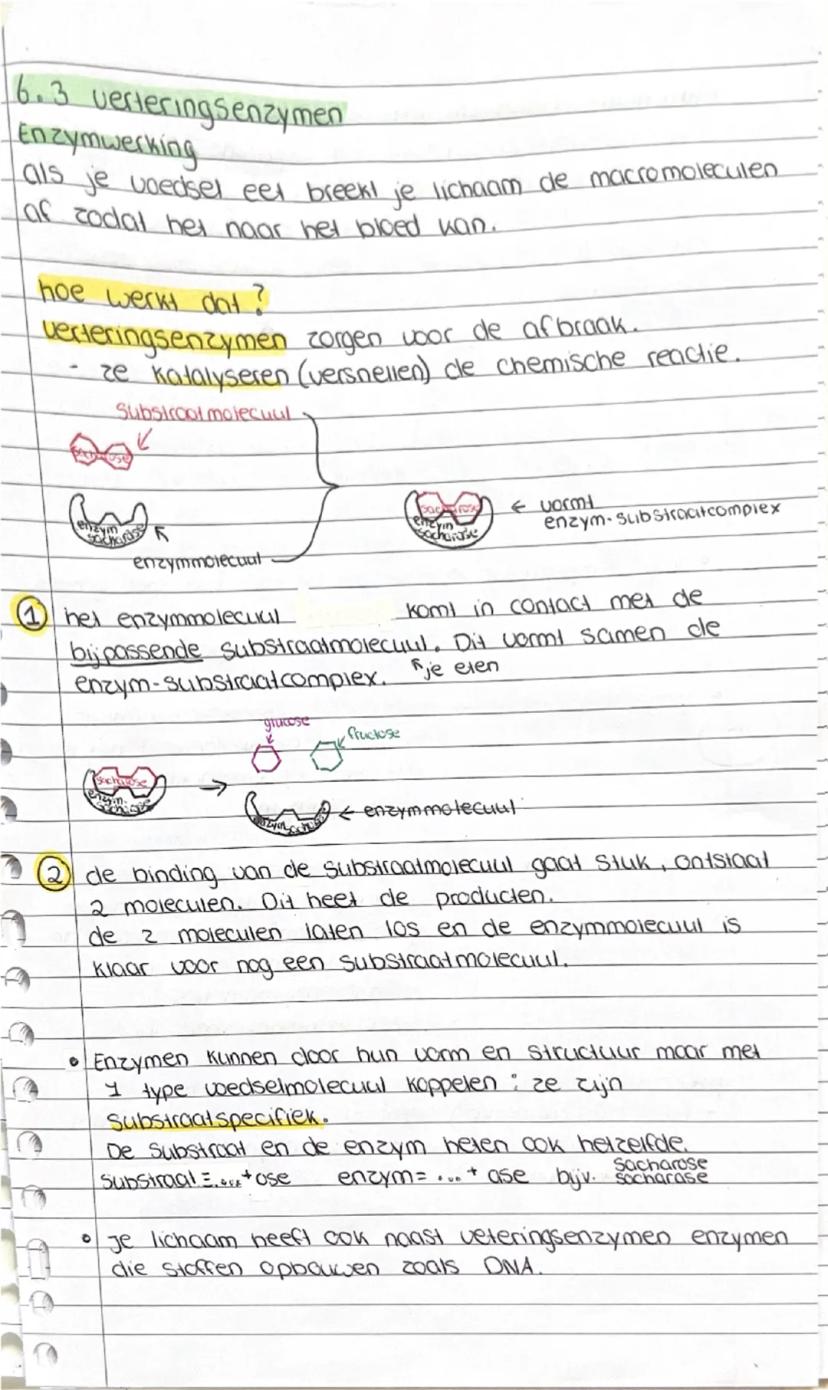 6.3 verteringsenzymen
Enzymwerking
als je voedsel eet breekt je lichaam de macromoleculen
af zodat het naar het bloed kan.
hoe werkt dat?
verteringsenzymen zorgen voor de afbraak.
- ze katalyseren (versnellen) de chemische reactie.
substraatmolecuul
sacharose
enzym
sacharase
enzymmolecuul
sacharose
enzym
sacharase
← vormt
enzym-substraatcomplex
1 het enzymmolecuul komt in contact met de
bijpassende substraatmolecuul. Dit vormt samen de
enzym-substraatcomplex. ↖je eten
glucose
fructose
sacharose
enzym
sacharase
→
enzym sacharase
← enzymmolecuul
2 de binding van de substraatmolecuul gaat stuk, ontstaat
2 moleculen. Dit heet de producten.
de 2 moleculen laten los en de enzymmolecuul is
klaar voor nog een substraatmolecuul.
• Enzymen kunnen door hun vorm en structuur maar met
1 type voedselmolecuul koppelen: ze zijn
substraatspecifiek.
De substraat en de enzym heten ook hetzelfde.
substraat = ... + ose enzym = ... + ase bijv. sacharose
sacharase
• je lichaam heeft ook naast veteringsenzymen enzymen
die stoffen opbouwen zoals DNA.